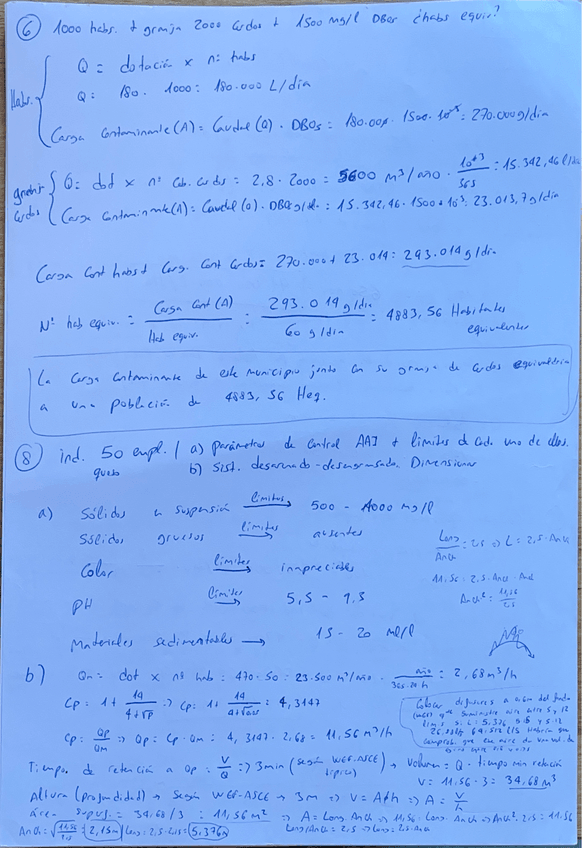 6 1000 habs. + granja 2000 cerdos + 1500 mg/l DBO5 ¿habs equiv.?
Habs. Q = dotación x nº habs
Q = 180 · 1000 = 180.000 L/día
Carga contaminante (A) = Caudal (Q) · DBO5 = 180.000 · 1500 · 10⁻³ = 270.000 g/día
cerdos Q = dot x nº cab. cerdos = 2,8 · 2000 = 5600 m³/año · 10⁺³/365 = 15.342,46 l/día
Carga Contaminante (A) = Caudal (Q) · DBO5 = 15.342,46 · 1500 · 10⁻³ = 23.013,7 g/día
Carga Cont habs + Carg. Cont cerdos = 270.000 + 23.014 = 293.014 g/día
Nº hab equiv. = Carga Cont (A) / Hab equiv. = 293.014 g/día / 60 g/día = 4883,56 Habitantes equivalentes
La carga contaminante de este municipio junto con su granja de cerdos equivaldría
a una población de 4883,56 Heq.
8 ind. queso 50 empl. / a) Parámetros de control AAI + límites de cada uno de ellos.
b) Sist. desarenado-desengrasado. Dimensionar
a) Sólidos en suspensión límites → 500 - 1000 mg/l
Sólidos gruesos límites → ausentes
Color límites → inapreciables
PH límites → 5,5 - 9,5
Materiales sedimentables → 15 - 20 ml/l
Long/Anch = 2,5 => L = 2,5 · Anch
11,56 = 2,5 · Anch · Anch
Anch² = 11,56/2,5
b) Qm = dot x nº hab = 470 · 50 = 23.500 m³/año · año/365·24 h = 2,68 m³/h
Cp = 1 + 14/4+√P => Cp = 1 + 14/4+√0,05 = 4,3147
Cp = Qp/Qm => Qp = Cp · Qm = 4,3147 · 2,68 = 11,56 m³/h
Colocar difusores a 60cm del fondo
Tiempo de retención a Qp = V/Q => 3 min (según WEF-ASCE típico) → Volumen = Q · tiempo min retención
V = 11,56 · 3 = 34,68 m³
Altura (profundidad) → Según WEF-ASCE → 3m => V = A·h => A = V/h
área superf. = 34,68/3 = 11,56 m² => A = Long · Anch => 11,56 = Long · Anch => Anch² · 2,5 = 11,56
Anch = √11,56/2,5 = 2,15m Long = 2,5 · 2,15 = 5,376m Long/Anch = 2,5 => Long = 2,5 · Anch